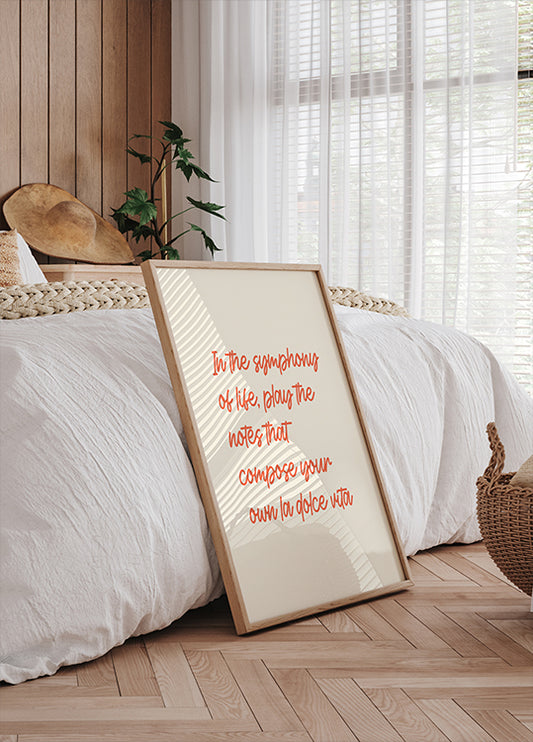 In the symphony
of life, play the
notes that
compose your
own la dolce vita